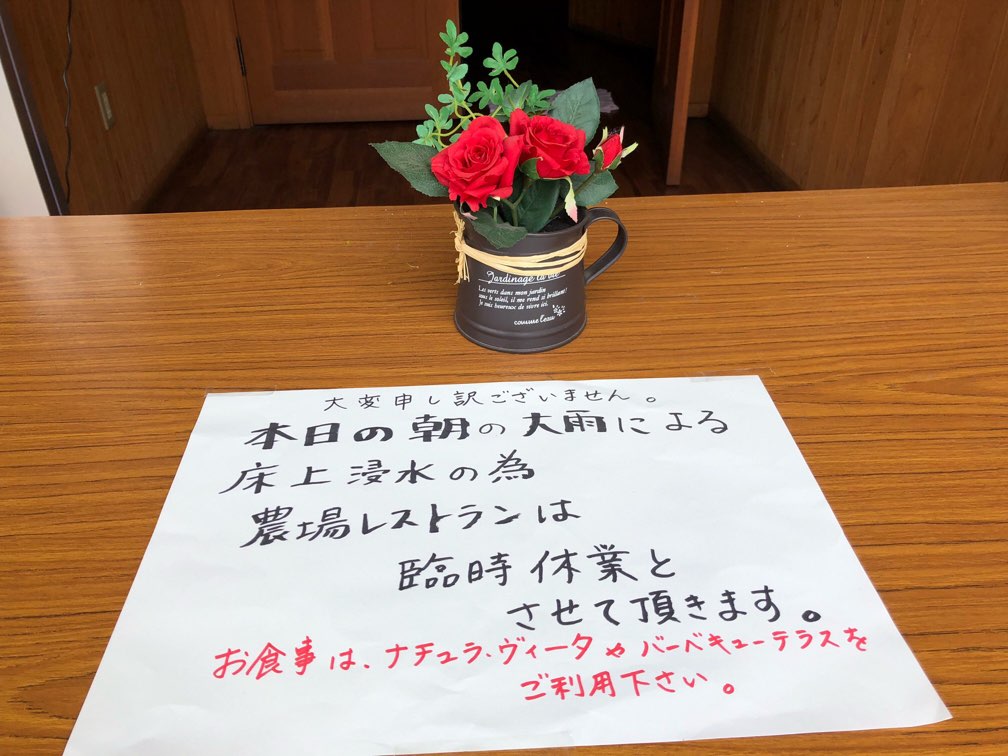 Jardinage la vie
Les verts dans mon jardin
sous le soleil, il me rend si brillant!
Je suis heureuse de vivre ici.
comme l'eau
大変申し訳ございません。
本日の朝の大雨による
床上浸水の為
農場レストランは
臨時休業と
させて頂きます。
お食事は、ナチュラ・ヴィータやバーベキューテラスを
ご利用下さい。